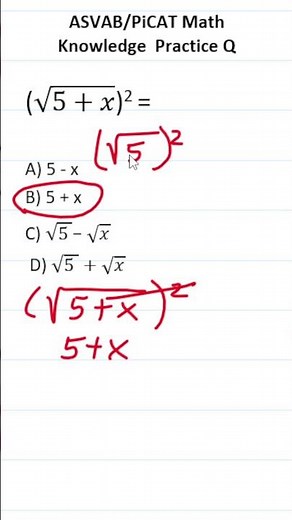 ASVAB/PiCAT Math
Knowledge Practice Q
(√5 + x)² =
(√5)²
A) 5 - x
B) 5 + x
C) √5 − √x
D) √5 + √x
(√5+x)²
5+x